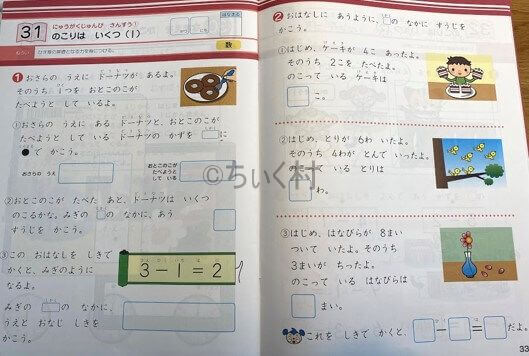 31
にゅうがくじゅんび さんすう①
のこりは いくつ(1)
がつ にち
数
ねらい ひき算の基礎となる力を身につける。
1 おさらの うえに ドーナツが あるよ。
そのうち 1つを おとこのこが
たべようと して いるよ。
①おさらの うえに ある ドーナツと、おとこのこが
たべようと して いる ドーナツの かずを □に
●で かこう。
おさらの うえ
おとこのこが
たべようと
して いる
②おとこのこが たべた あと、ドーナツは いくつ
のこるかな。みぎの □の なかに、あう
すうじを かこう。
③この おはなしを しきで
かくと、みぎのように
なるよ。
3-1=2
みぎの □の なかに、
うえと おなじ しきを
かこう。
2 おはなしに あうように、□の なかに すうじを
かこう。
①はじめ、ケーキが 4こ あったよ。
そのうち 2こを たべたよ。
のこって いる ケーキは
□こ。
②はじめ、とりが 6わ いたよ。
そのうち 4わが とんで いったよ。
のこって いる とりは
□わ。
③はじめ、はなびらが 8まい
ついて いたよ。そのうち
3まいが ちったよ。
のこって いる はなびらは
□まい。
これを しきで かくと、□-□=□だよ。
33
©ちいく村